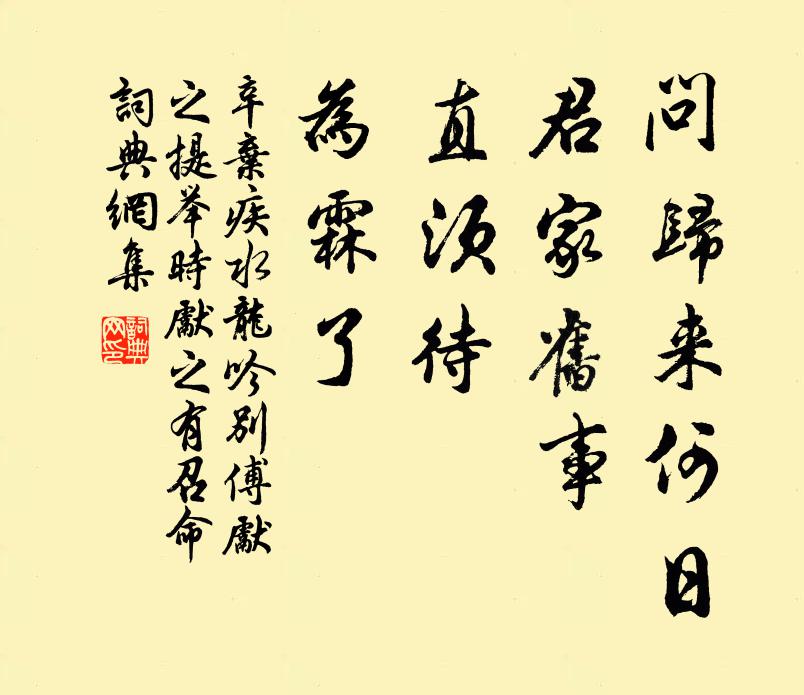 問歸来何日
君家舊事
直須待
為霖了
辛棄疾水龍吟別傅獻
之提举時獻之有召命
詞典網集
詞典
网印